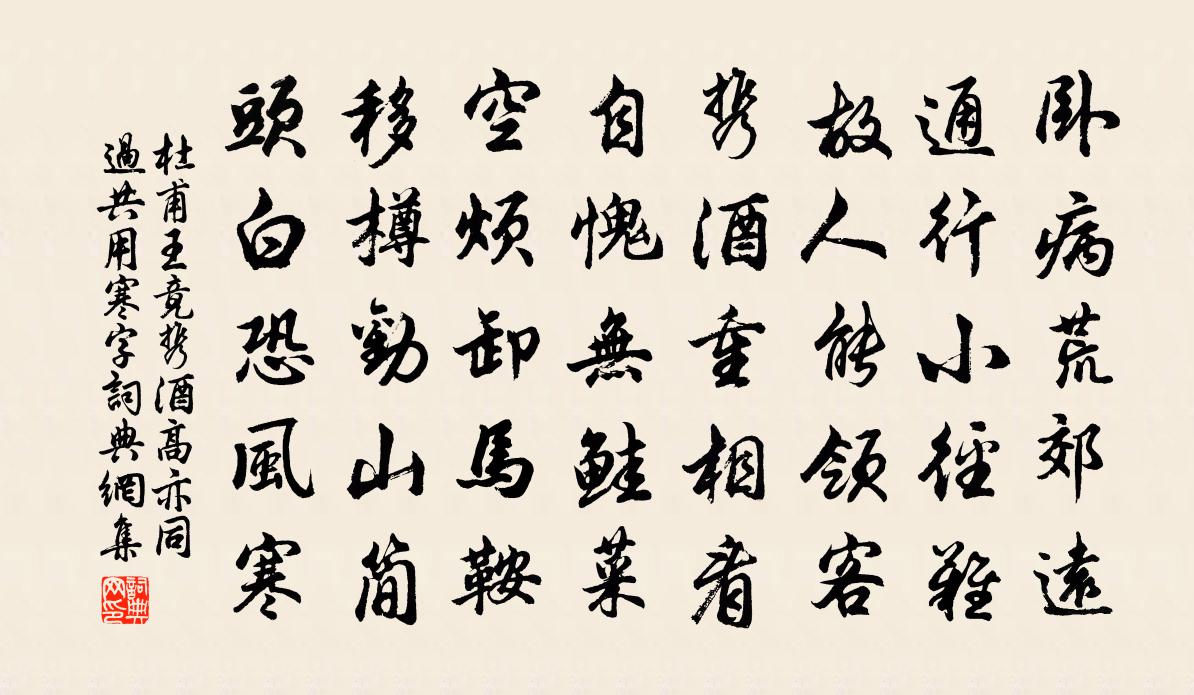 卧病荒郊遠
通行小徑難
故人能領客
携酒重相看
自愧無鮭菜
空煩卸馬鞍
移樽勸山簡
頭白恐風寒
杜甫王竟携酒高亦同
過共用寒字詞典網集
詞典網印